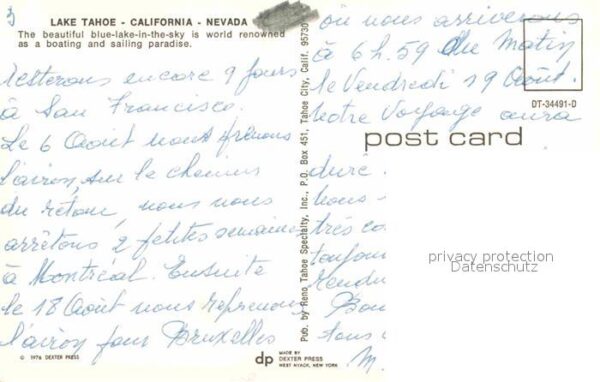 LAKE TAHOE - CALIFORNIA - NEVADA
The beautiful blue-lake-in-the-sky is world renowned
as a boating and sailing paradise.
3
resterons encore 9 jours
à San Francisco.
Le 6 Août nous prenons
l'avion, sur le chemin
du retour, nous nous
arrêtons 2 petites semaines
à Montréal. Ensuite
le 18 Août nous reprenons
l'avion pour Bruxelles
© 1976 DEXTER PRESS
Pub. by Reno Tahoe Specialty, Inc., P.O. Box 451, Tahoe City, Calif. 95730
dp
MADE BY
DEXTER PRESS
WEST NYACK, NEW YORK
où nous arriverons
à 6h.59 du Matin
le Vendredi 19 Août.
Notre Voyage aura
DT-34491-D
post card
duré
Nous
très co
toujou
rendu
Bon
tous
M.
privacy protection
Datenschutz